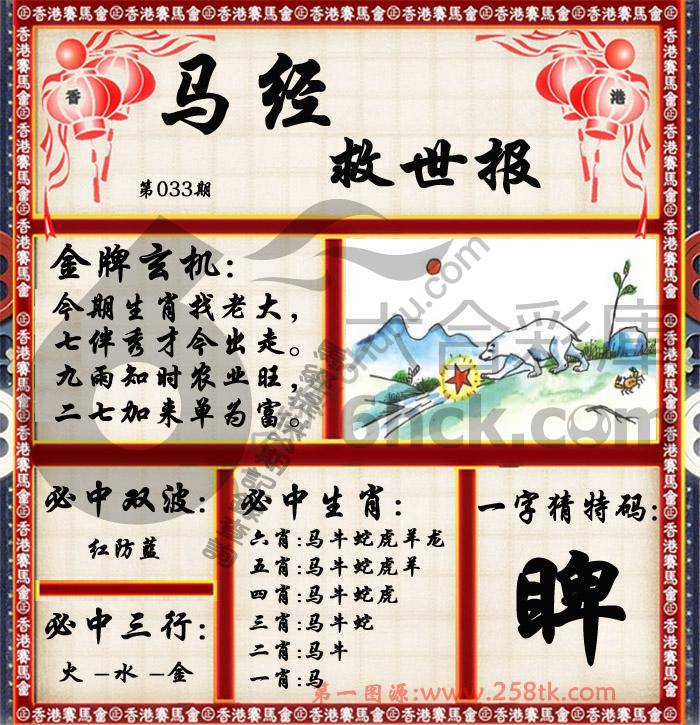 香港賽馬會
香
港
马经
救世报
第033期
金牌玄机:
今期生肖找老大,
七伴秀才今出走。
九雨知时农业旺,
二七加来单为富。
六合彩库
6hck.com
必中双波:
红防蓝
必中三行:
火-水-金
必中生肖:
六肖:马牛蛇虎羊龙
五肖:马牛蛇虎羊
四肖:马牛蛇虎
三肖:马牛蛇
二肖:马牛
一肖:马
一字猜特码:
睥
第一图源:www.258tk.com